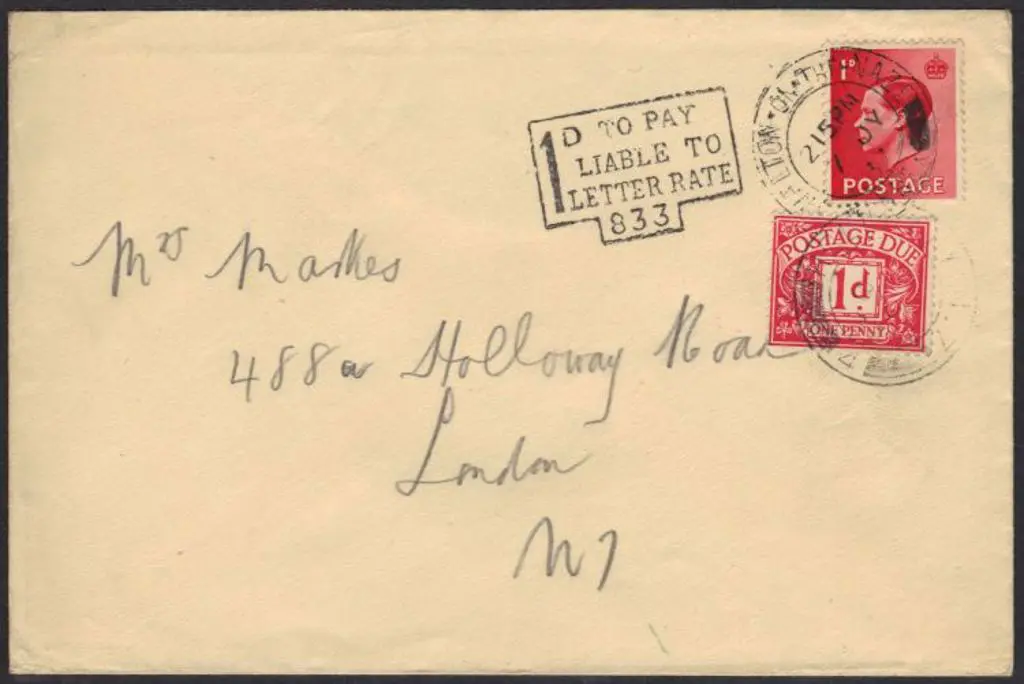 1D TO PAY
LIABLE TO
LETTER RATE
833
WALTON-ON-THE-NAZE
2 15 PM
1D
POSTAGE
POSTAGE DUE
1d.
ONE PENNY
Mrs Markes
488a Holloway Road
London
N7